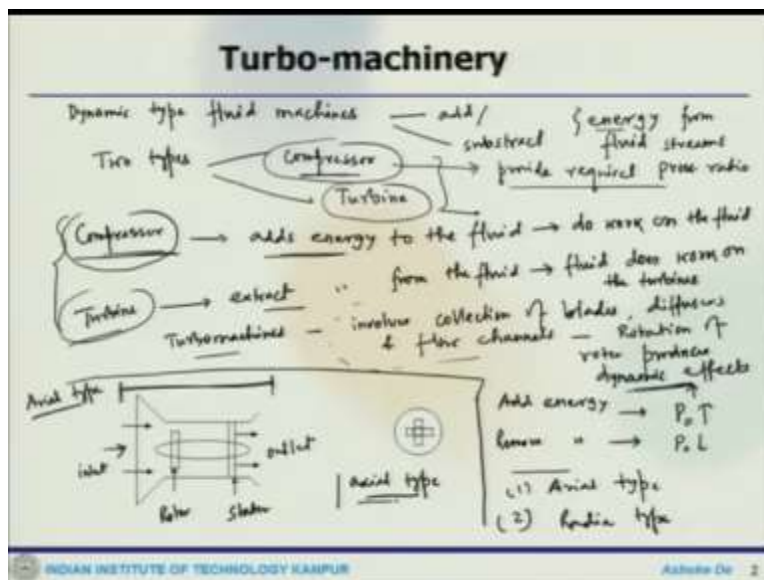 Turbo-machinery
Dynamic type fluid machines — add/ substract { energy from fluid streams
Two types Compressor → provide required press ratio
Turbine
Compressor → adds energy to the fluid → do work on the fluid
Turbine → extract " from the fluid → fluid does work on the turbines
Turbomachines — involves collection of blades, diffusers & flow channels — Rotation of rotor produces dynamic effects
Axial type
inlet
outlet
Rotor
Stator
axial type
Add energy → P₀ ↑
Remove " → P₀ ↓
(1) Axial type
(2) Radia type
INDIAN INSTITUTE OF TECHNOLOGY KANPUR
Ashoke De 2